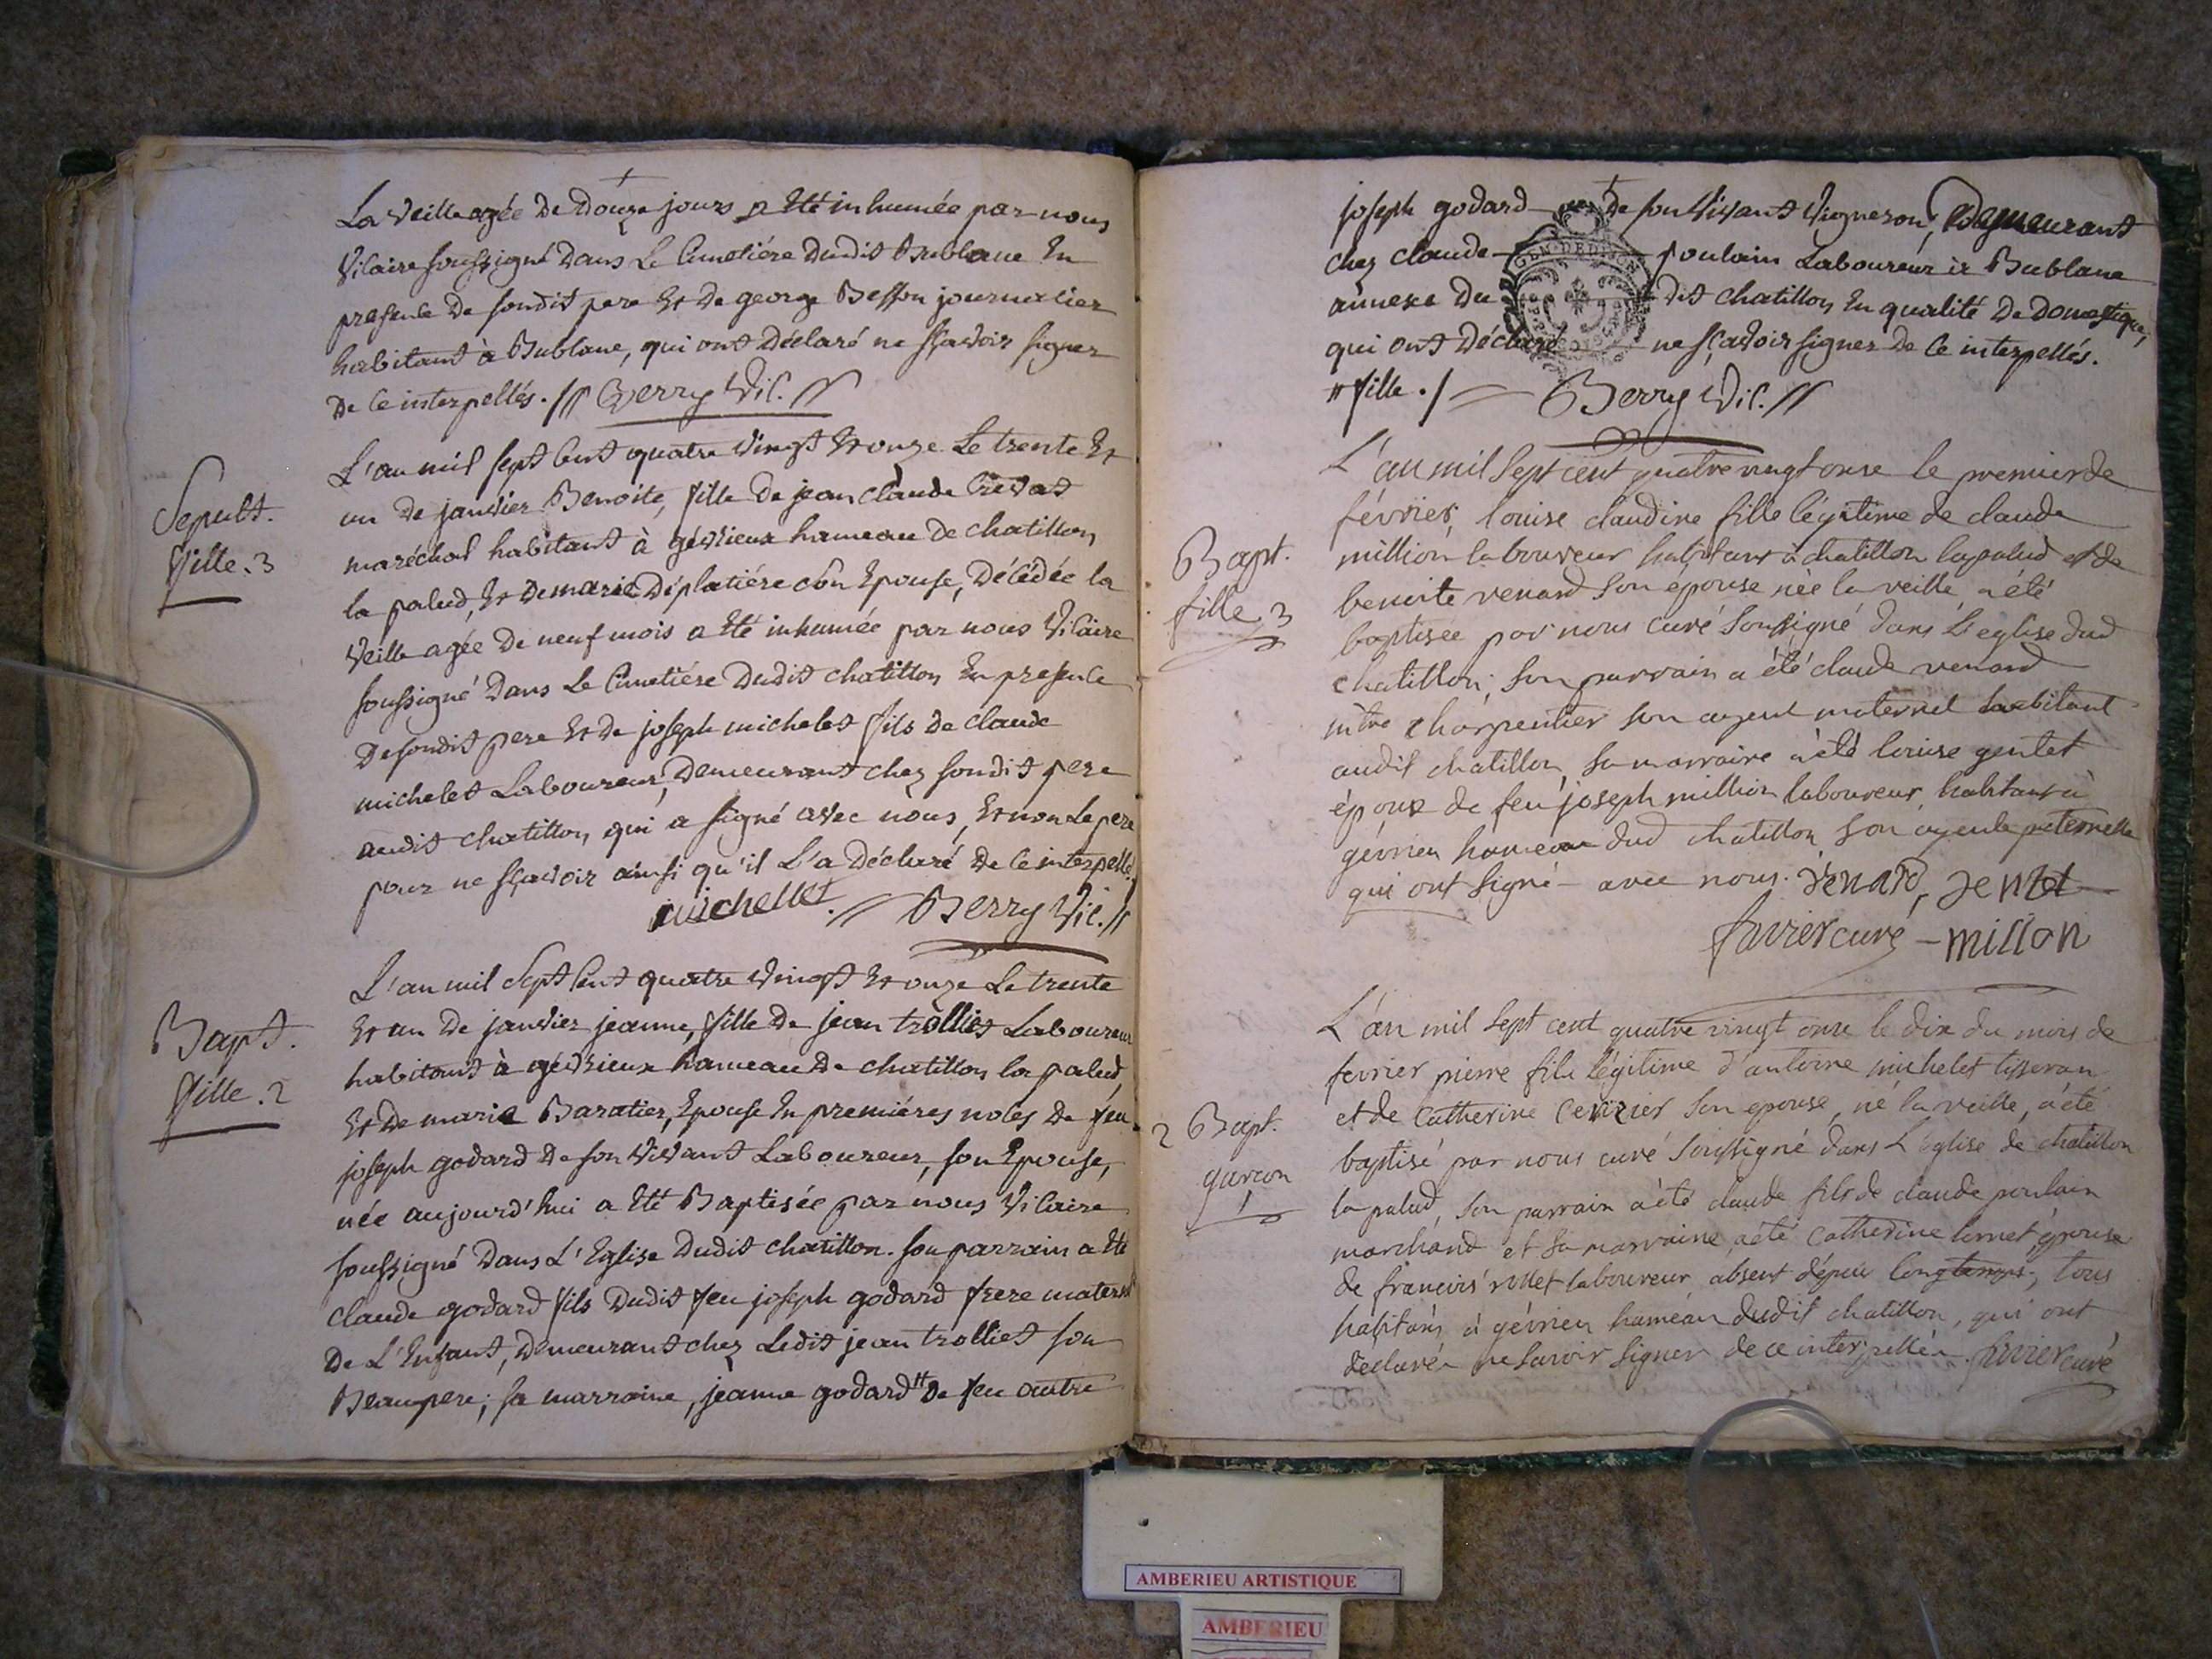 La veille agée de douze jours a été inhumée par nous
Vicaire soussigné dans le Cimetiére dudit Bublane En
presence de sondit pere Et de george Besson journalier
habitant à Bublane, qui ont déclaré ne sçavoir signer
de ce interpellés. // Berry Vic. //
Sepult.
fille. 3
L'an mil sept cent quatre vingt Et onze Le trente Et
un de janvier Benoite, fille de jean claude Crevat
maréchal habitant à gévrieux hameau de chatillon
la palud, Et de marie Déplatiére son Epouse, décédée la
Veille agée de neuf mois a été inhumée par nous Vicaire
soussigné dans Le Cimetiére dudit chatillon En presence
de sondit pere Et de joseph michelet fils de claude
michelet Laboureur, demeurant chez sondit pere
audit chatillon, qui a signé avec nous, Et non Le pere
pour ne sçavoir ainsi qu'il L'a déclaré de ce interpellé.
michellet // Berry Vic. //
Bapt.
fille. 2
L'an mil sept cent quatre vingt Et onze Le trente
Et un de janvier jeanne, fille de jean trolliet Laboureur
habitant à gévrieux hameau de chatillon la palud,
Et de marie Baratier, Epouse En premiéres noces de feu
joseph godard de son vivant Laboureur, son Epouse,
née aujourd'hui a été Baptisée par nous Vicaire
soussigné dans L'Eglise dudit chatillon. son parrain a été
claude godard fils dudit feu joseph godard frere maternel
de L'Enfant, demeurant chez Ledit jean trolliet son
Beaupere; sa marraine, jeanne godard # de feu autre
joseph godard de son vivant Vigneron, demeurant
chez claude poulain Laboureur à Bublane
annexe du dit chatillon En qualité de domestique,
qui ont déclaré ne sçavoir signer de ce interpellés.
# fille. / Berry Vic. //
Bapt.
fille 3
L'an mil sept cent quatre vingt onse le premier de
février, louise claudine fille légitime de claude
million laboureur habitant à chatillon lapalud et de
benoite venard son epouse née la veille a été
baptisée par nous curé soussigné dans l'eglise dud
chatillon, son parrain a été claude venard
mtre charpentier son ayeul maternel habitant
audit chatillon, sa marraine a été louise gentet
épouse de feu joseph million laboureur habitant à
gévrieu hameau dud chatillon son ayeule paternelle
qui ont signé avec nous. venard, Jentet
favier curé - millon
2 Bapt.
garcon
1
L'an mil sept cent quatre vingt onse le dix du mois de
fevrier pierre fils légitime d'antoine michelet tisseran
et de Catherine Cerizier son epouse, né la veille, a été
baptisé par nous curé soussigné dans L'église de chatillon
la palud, son parrain a été claude fils de claude poulain
marchand et sa marraine a été Catherine épouse
de francois rollet laboureur absent dépuis longtemps, tous
habitans à gévrieu hameau dudit chatillon, qui ont
déclarés ne savoir signer de ce interpellés. favier curé
GEN. DE DIJON
AMBERIEU ARTISTIQUE
AMBERIEU